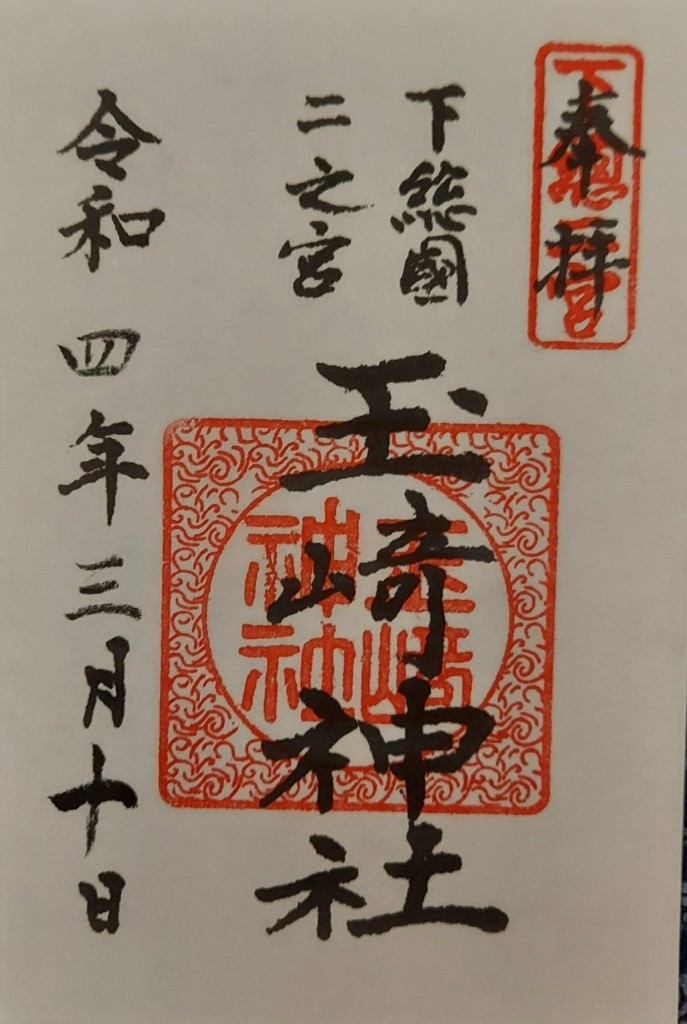 奉拝
下總二宮
下総國
二之宮
玉﨑神社
玉﨑神社
令和四年三月十日